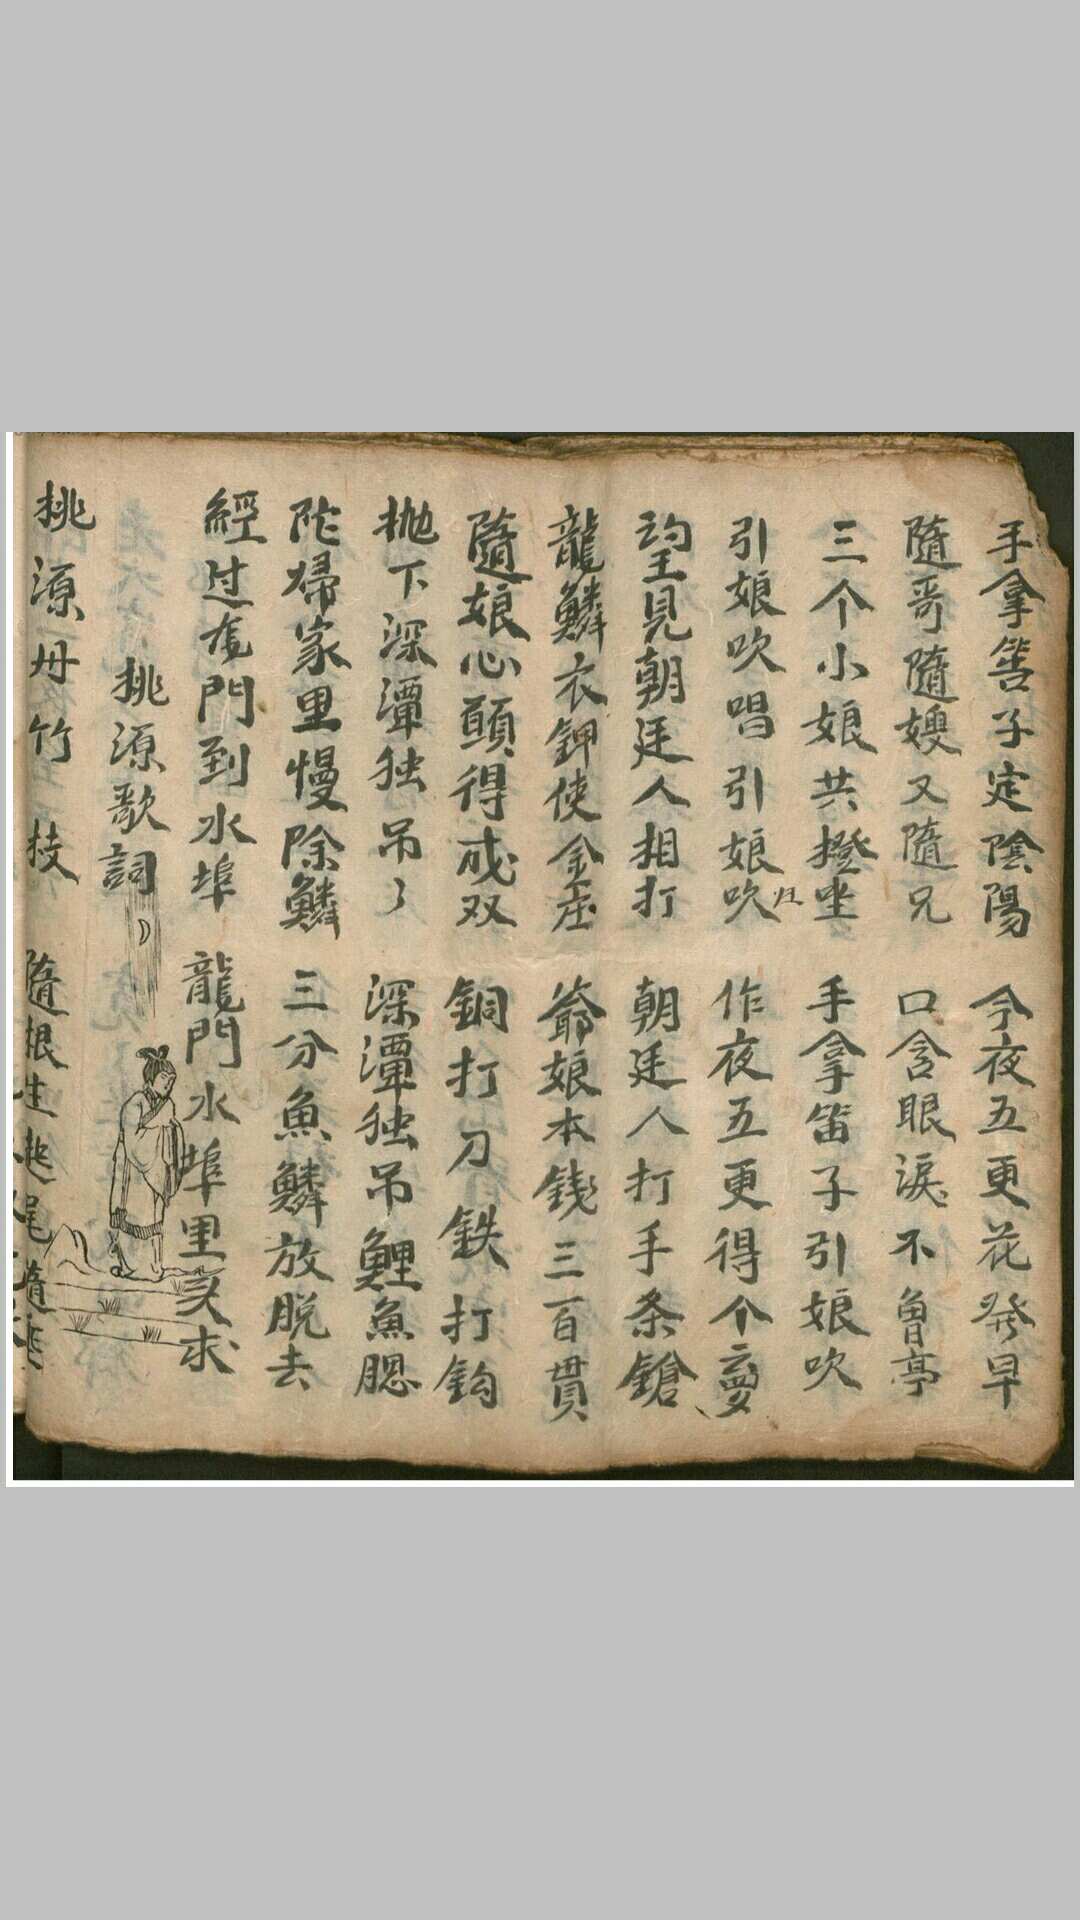 手拿筶子定陰陽 今夜五更花發早
隨哥隨嫂又隨兄 口含眼淚不魯亭
三个小娘共撜坐 手拿笛子引娘吹
引娘吹唱引娘吹 作夜五更得个夢
望見朝廷人相打 朝廷人打手条鎗
龍鱗衣鉀使金庄 爺娘本錢三百貫
隨娘心頭得成双 銅打刀鉄打鈎
抛下深潭独吊了 深潭独吊鯉魚腮
陀婦家里慢除鱗 三分魚鱗放脱去
經过龙門到水埠 龍門水埠里又求
桃源歌詞
桃源丹竹枝 隨根生起尾隨